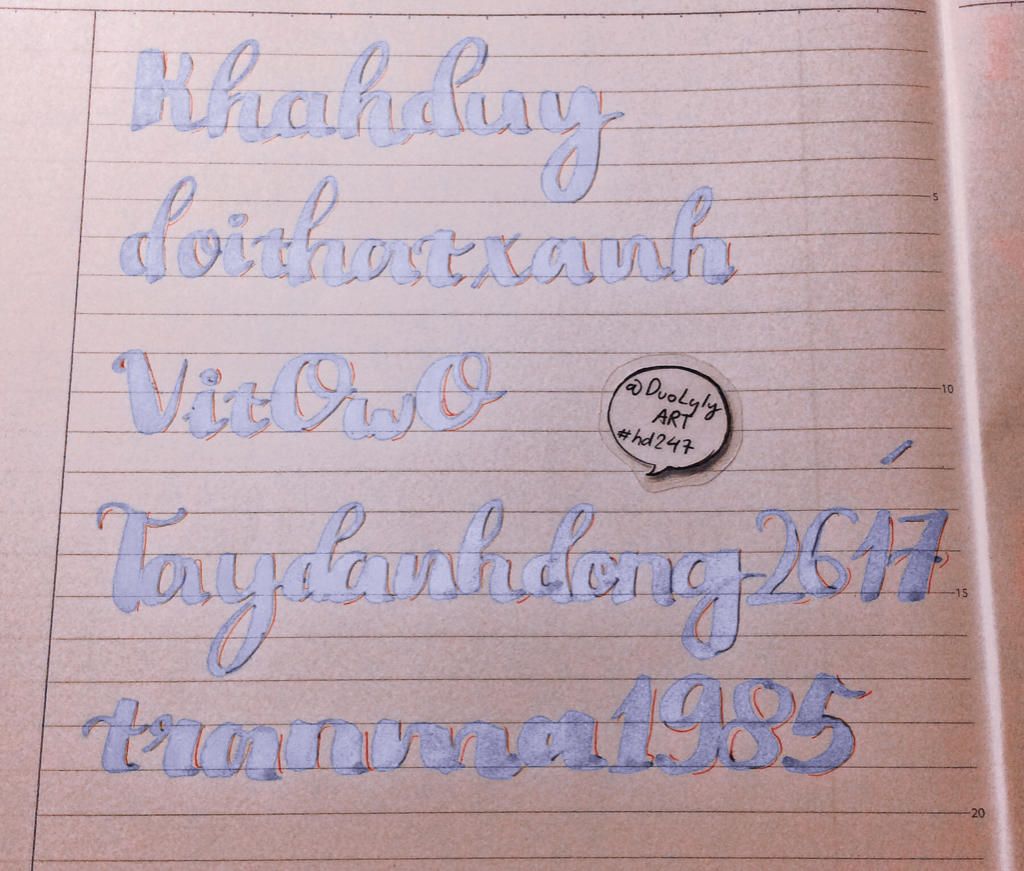 Khahduy
5
doithatxanh
VitOwO
10
@DuoLyly
ART
#hd247
Taydanhdong2617
15
tranma1985
20